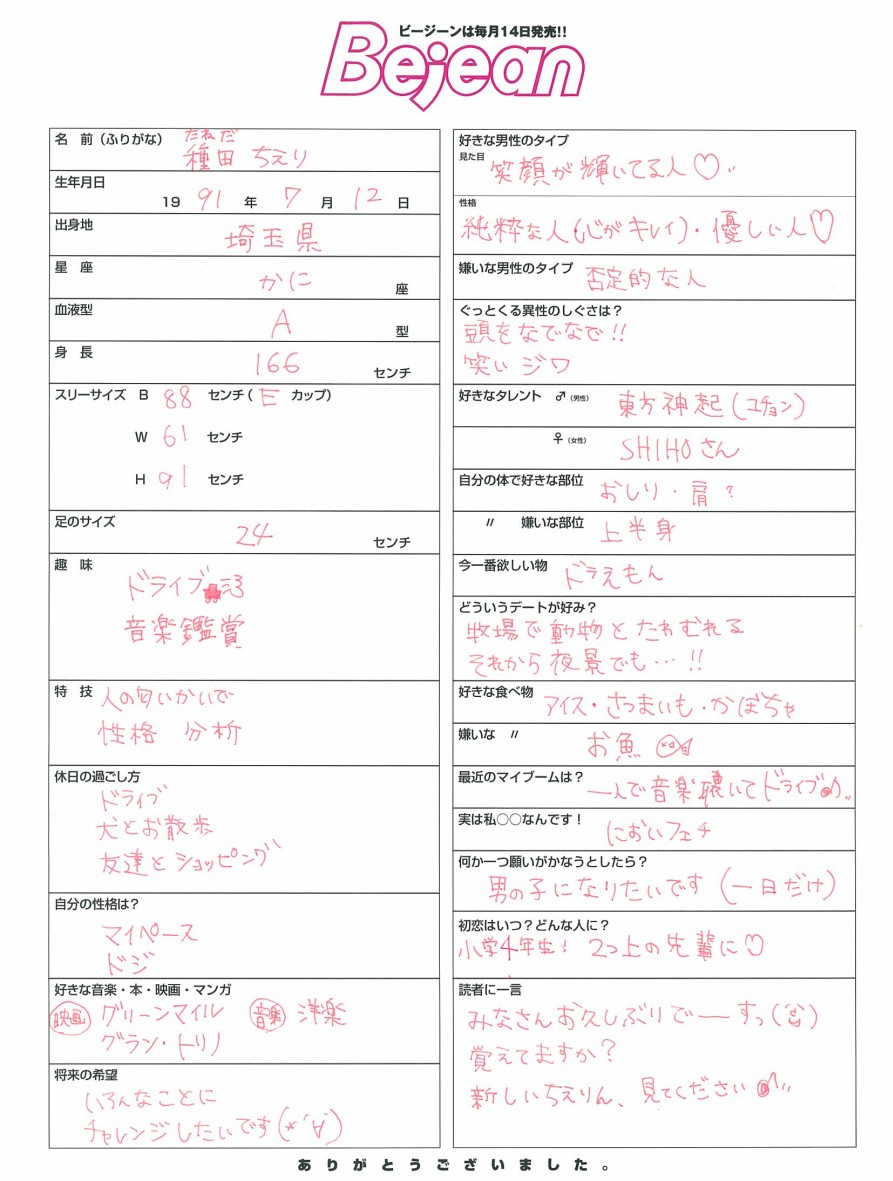 ビージーンは毎月14日発売!!
Bejean
名 前(ふりがな) たねだ
種田 ちえり
生年月日
19 91 年 7 月 12 日
出身地
埼玉県
星 座
かに 座
血液型
A 型
身 長
166 センチ
スリーサイズ B 88 センチ( E カップ)
W 61 センチ
H 91 センチ
足のサイズ
24 センチ
趣 味
ドライブ
音楽鑑賞
特 技 人の匂いかいで
性格 分析
休日の過ごし方
ドライブ
犬とお散歩
友達とショッピング
自分の性格は?
マイペース
ドジ
好きな音楽・本・映画・マンガ
映画 グリーンマイル 音楽 洋楽
グラン・トリノ
将来の希望
いろんなことに
チャレンジしたいです(*´∀`)
好きな男性のタイプ
見た目 笑顔が輝いてる人♡
性格
純粋な人(心がキレイ)・優しい人♡
嫌いな男性のタイプ 否定的な人
ぐっとくる異性のしぐさは?
頭をなでなで!!
笑いジワ
好きなタレント ♂(男性) 東方神起(ユチョン)
♀(女性) SHIHOさん
自分の体で好きな部位 おしり・肩?
〃 嫌いな部位 上半身
今一番欲しい物 ドラえもん
どういうデートが好み?
牧場で動物とたわむれる
それから夜景でも…!!
好きな食べ物 アイス・さつまいも・かぼちゃ
嫌いな 〃 お魚
最近のマイブームは? 一人で音楽聴いてドライブ♪
実は私○○なんです! においフェチ
何か一つ願いがかなうとしたら?
男の子になりたいです(一日だけ)
初恋はいつ?どんな人に?
小学4年生! 2つ上の先輩に♡
読者に一言
みなさんお久しぶりでーすっ
覚えてますか?
新しいちえりん、見てください♪
ありがとうございました。